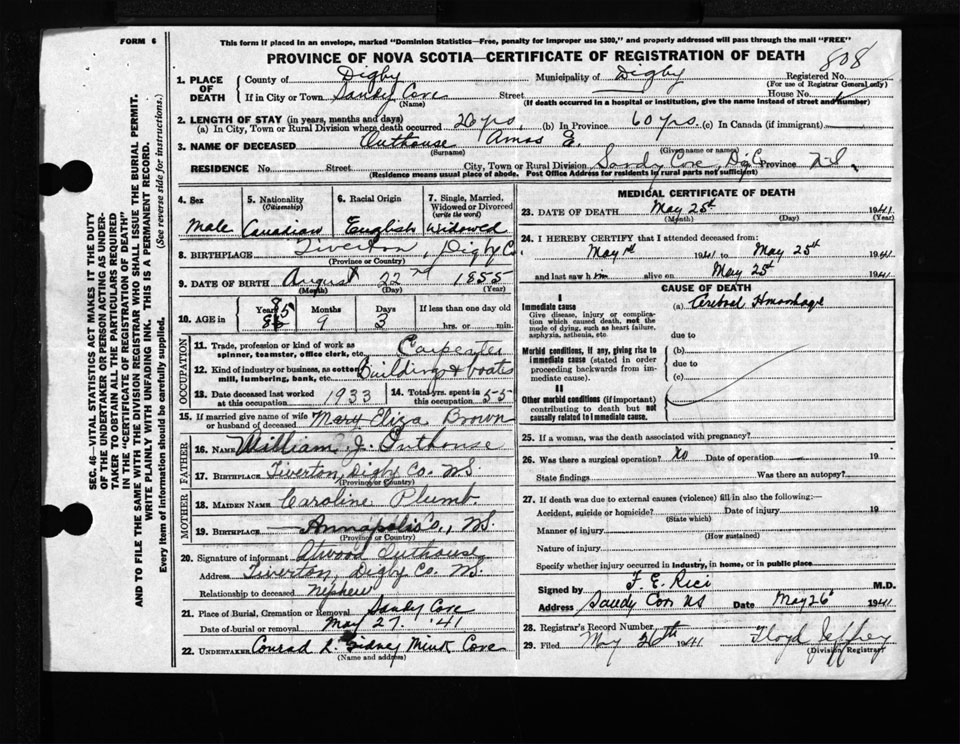 FORM 6
This form if placed in an envelope, marked "Dominion Statistics—Free, penalty for improper use $300," and properly addressed will pass through the mail "FREE"
PROVINCE OF NOVA SCOTIA—CERTIFICATE OF REGISTRATION OF DEATH
808
SEC. 46—VITAL STATISTICS ACT MAKES IT THE DUTY
OF THE UNDERTAKER OR PERSON ACTING AS UNDER-
TAKER TO OBTAIN ALL THE PARTICULARS REQUIRED
IN THE "CERTIFICATE OF REGISTRATION OF DEATH"
AND TO FILE THE SAME WITH THE DIVISION REGISTRAR WHO SHALL ISSUE THE BURIAL PERMIT.
WRITE PLAINLY WITH UNFADING INK. THIS IS A PERMANENT RECORD.
Every item of information should be carefully supplied. (See reverse side for instructions.)
1. PLACE OF DEATH County of Digby Municipality of Digby Registered No.
(For use of Registrar General only)
If in City or Town Sandy Cove Street House No.
(Name) (If death occurred in a hospital or institution, give the name instead of street and number)
2. LENGTH OF STAY (in years, months and days)
(a) In City, Town or Rural Division where death occurred 26 yrs. (b) In Province 60 yrs. (c) In Canada (if immigrant)
3. NAME OF DECEASED Outhouse Amos E.
(Surname) (Given name or names)
RESIDENCE No. Street City, Town or Rural Division Sandy Cove, Dig Co Province N.S.
(Residence means usual place of abode. Post Office Address for residents in rural parts not sufficient)
4. Sex 5. Nationality (Citizenship) 6. Racial Origin 7. Single, Married, Widowed or Divorced (write the word)
Male Canadian English Widowed
8. BIRTHPLACE Tiverton, Digby Co.
(Province or Country)
9. DATE OF BIRTH August 22nd 1855
(Month) (Day) (Year)
10. AGE in Years Months Days If less than one day old
85 9 3 hrs. or min.
OCCUPATION
11. Trade, profession or kind of work as spinner, teamster, office clerk, etc. Carpenter
12. Kind of industry or business, as cotton mill, lumbering, bank, etc. Building & boats
13. Date deceased last worked at this occupation 1933 14. Total yrs. spent in this occupation 55
15. If married give name of wife or husband of deceased Mary Eliza Brown
FATHER
16. NAME William J. Outhouse
17. BIRTHPLACE Tiverton, Digby Co. N.S.
(Province or Country)
MOTHER
18. MAIDEN NAME Caroline Plumb
19. BIRTHPLACE Annapolis Co., N.S.
(Province or Country)
20. Signature of informant Atwood Outhouse
Address Tiverton, Digby Co. N.S.
Relationship to deceased nephew
21. Place of Burial, Cremation or Removal Sandy Cove
Date of burial or removal May 27 '41
22. UNDERTAKER Conrad L. Gidney Mink Cove
(Name and address)
MEDICAL CERTIFICATE OF DEATH
23. DATE OF DEATH May 25th 1941
(Month) (Day) (Year)
24. I HEREBY CERTIFY that I attended deceased from:
May 1st 1941 to May 25th 1941
and last saw him alive on May 25th 1941
CAUSE OF DEATH
I
Immediate cause (a)
Give disease, injury or complication which caused death, not the mode of dying, such as heart failure, asphyxia, asthenia, etc. due to
Morbid conditions, if any, giving rise to immediate cause (stated in order proceeding backwards from immediate cause). (b)
due to
(c)
II
Other morbid conditions (if important) contributing to death but not causally related to immediate cause.
25. If a woman, was the death associated with pregnancy?
26. Was there a surgical operation? No Date of operation 19
State findings Was there an autopsy?
27. If death was due to external causes (violence) fill in also the following:—
Accident, suicide or homicide? Date of injury 19
(State which)
Manner of injury
(How sustained)
Nature of injury
Specify whether injury occurred in industry, in home, or in public place
Signed by F. E. Rice M.D.
Address Sandy Cove NS Date May 26 1941
28. Registrar's Record Number
29. Filed May 26th 1941 Floyd Jeffrey
(Division Registrar)